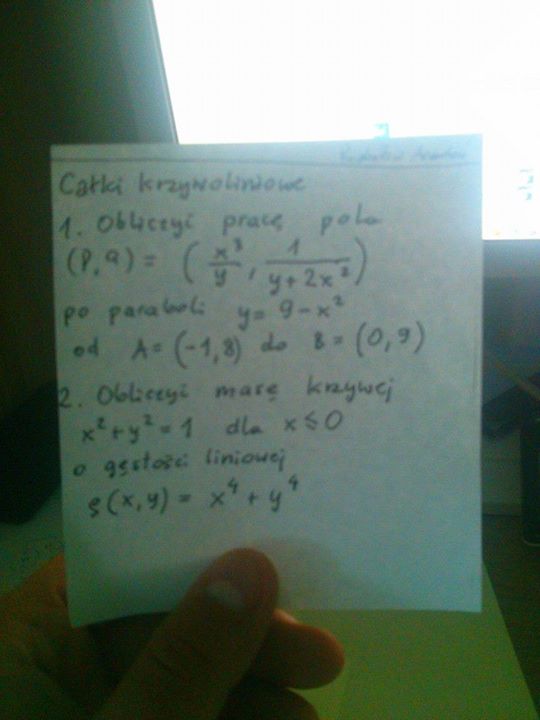 Całki krzywoliniowe
1. Obliczyć pracę pola
(P, Q) = ( x³/y , 1/(y + 2x²) )
po paraboli y = 9 - x²
od A = (-1,8) do B = (0,9)
2. Obliczyć masę krzywej
x² + y² = 1 dla x ≤ 0
o gęstości liniowej
ρ(x,y) = x⁴ + y⁴